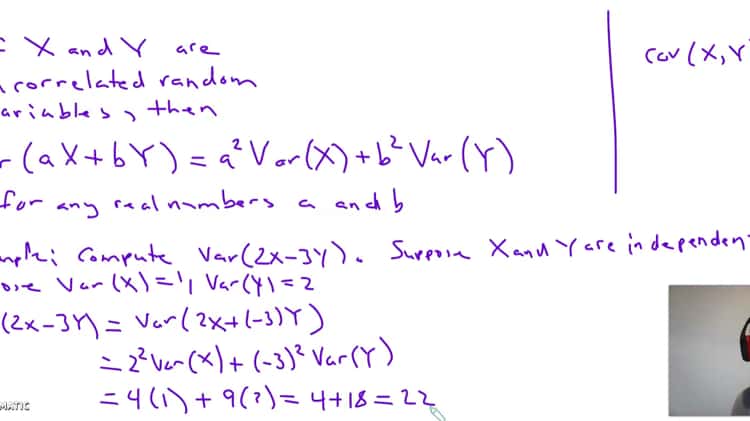 X and Y are
correlated random
ariables, then
(aX+bY) = a²Var(X)+b²Var(Y)
for any real numbers a and b
Cov(X,Y
mple: Compute Var(2X-3Y). Suppose X and Y are independen
ose Var(X)=1, Var(Y)=2
(2X-3Y) = Var(2X+(-3)Y)
= 2²Var(X)+(-3)²Var(Y)
= 4(1) + 9(2) = 4+18 = 22
MATIC